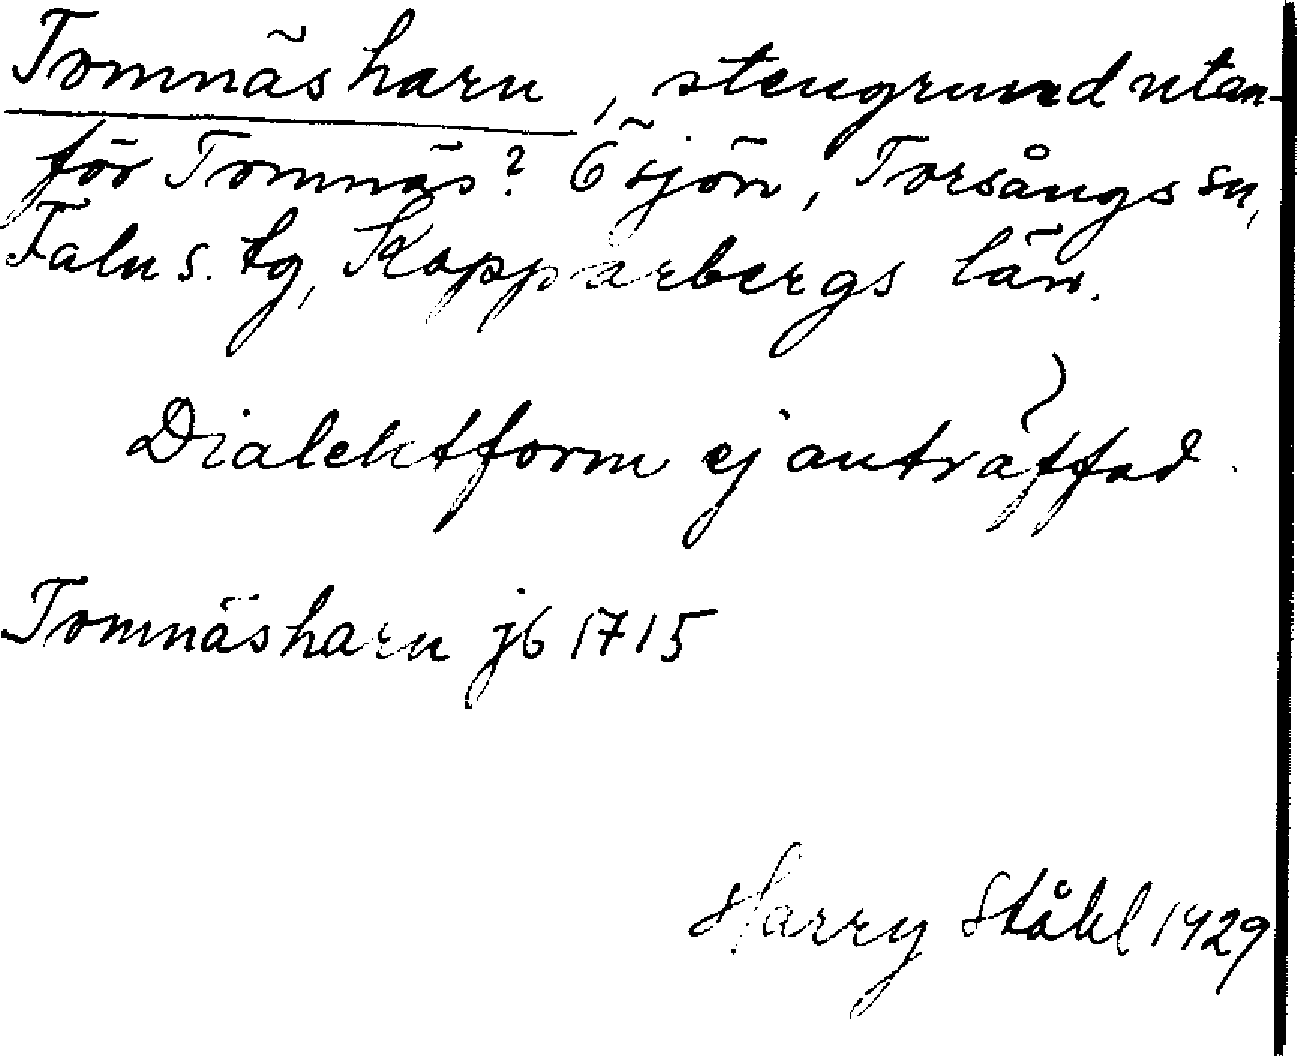 Tomnäsharu, stengrund utan-
för Tomnäs? Ösjön, Torsångs sn,
Falu s. tg, Kopparbergs län.
Dialektform ej anträffad.
Tomnäsharu jb 1715
Harry Ståhl 1929